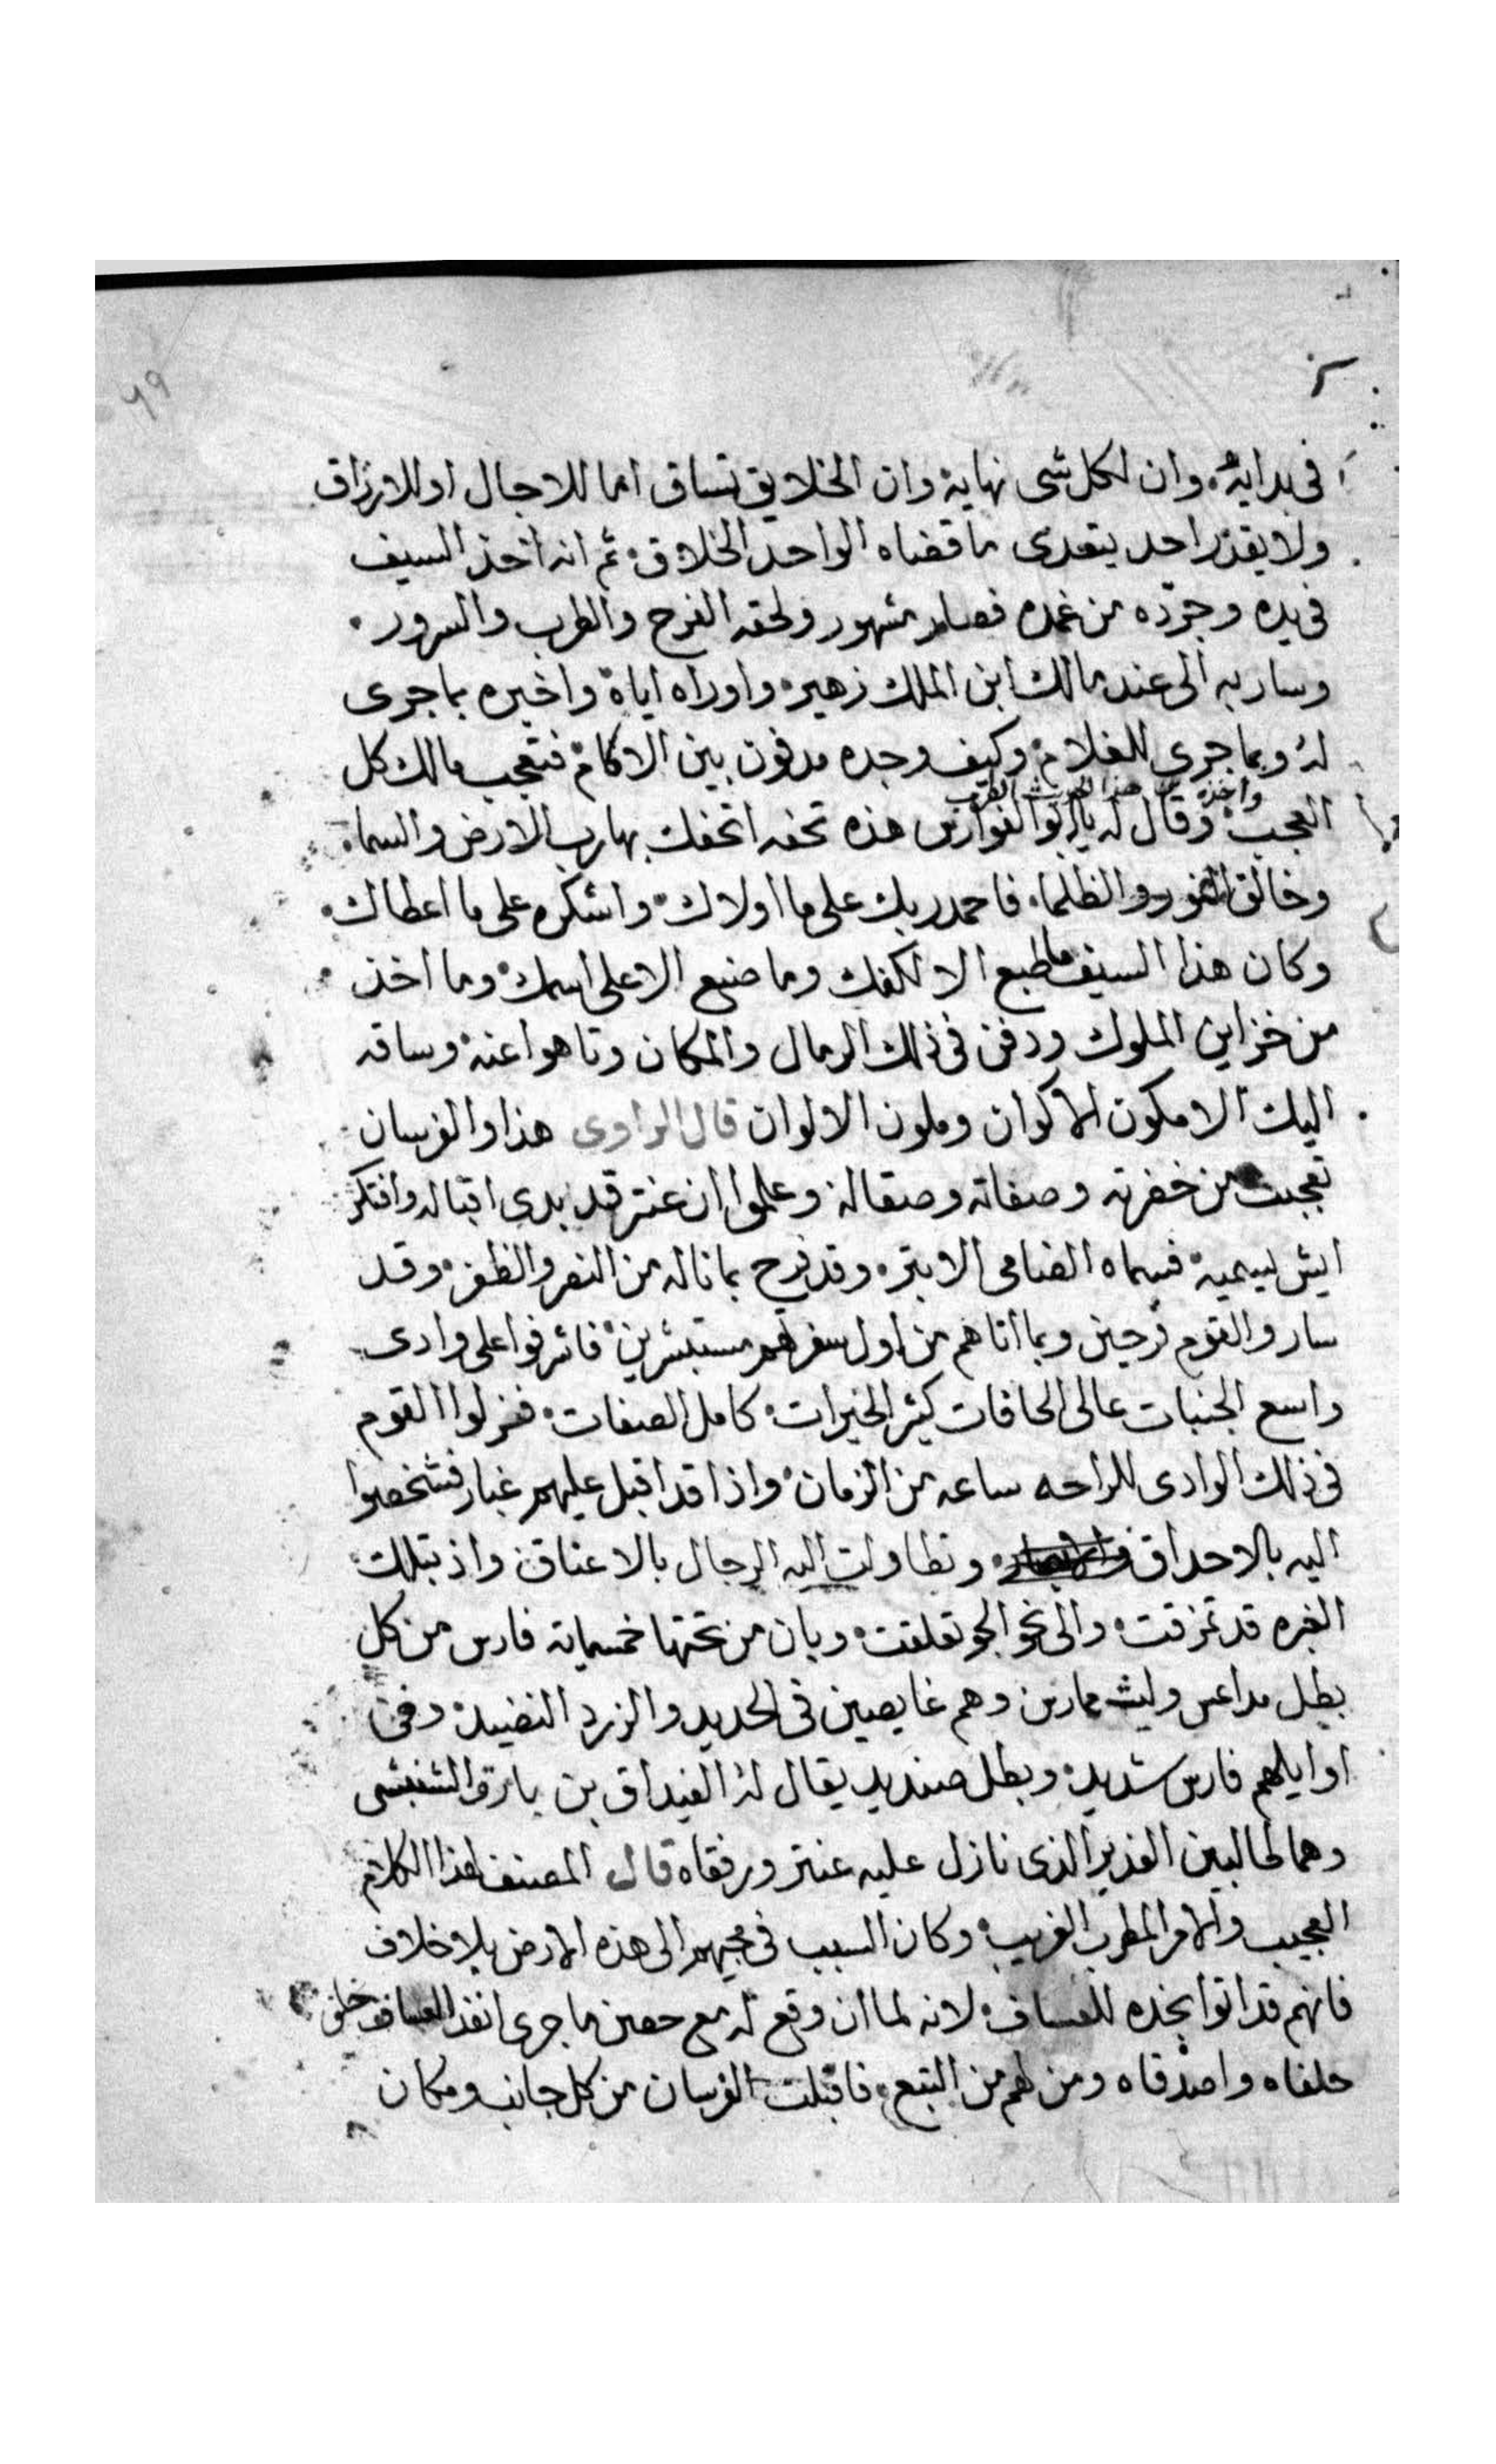 ٦٩
فى بدايته وان لكل شى نهاية وان الخلايق تساق اما للاجال او للارزاق
ولا يقدر احد يتعدى ما قضاه الواحد الخلاق ثم انه اخذ السيف
فى يده وجرّده من غمده فصار مشهور ولحقه الفرح والطرب والسرور
وسار به الى عند مالك ابن الملك زهير واوراه اياة واخبره بما جرى
لهُ وبما جرى للغلام وكيف وجده مدفون بين الاكام فتعجب مالك كل
واخذه من هذا الحديث الطرب
العجب وقال له يا ابو الفوارس هذه تحفه اتحفك بها رب الارض والسماء
وخالق النور والظلماء فاحمد ربك على ما اولاك واشكره على ما اعطاك
وكان هذا السيف ما طبع الا لكفك وما صنع الا على اسمك وما اخذ
من خزاين الملوك ودفن فى ذلك الرمال والمكان وتاهوا عنه وساقه
اليك الا مكون الاكوان وملون الالوان قال الراوى هذا والفرسان
تعجبت من خضرته وصفاته وصقاله وعلموا ان عنتر قد بدى اقباله وافتكر
ايش يسميه فسماه الضامى الابتر وقد فرح بما ناله من النصر والظفر وقد
سار والقوم فرحين وبما اتاهم من اول سفرهم مستبشرين فاشرفوا على وادى
واسع الجنبات عالى الحافات كثير الخيرات كامل الصفات فنزلوا القوم
فى ذلك الوادى للراحه ساعه من الزمان واذا قد اقبل عليهم غبار فشخصوا
اليه بالاحداق وتطاولت اليه الرجال بالاعناق واذ بتلك
الغبره قد تمزقت والى نحو الجو تعلقت وبان من تحتها خمسماية فارس من كل
بطل مداعس وليث ممارس وهم غايصين فى الحديد والزرد النضيد وفى
اوايلهم فارس شديد وبطل صنديد يقال لهُ الغيداق بن بارق الشنبشى
وهم طالبين الغدير الذى نازل عليه عنتر ورفقاه قال المصنف لهذا الكلام
العجيب والامر المطرب الغريب وكان السبب فى مجيهم الى هذه الارض بلا خلاف
فانهم قد اتوا نجده للعساف لانه لما ان وقع له مع حصن ما جرى انفذ العساف خلف
حلفاه واصدقاه ومن لهم من التبع فاقبلت الفرسان من كل جانب ومكان